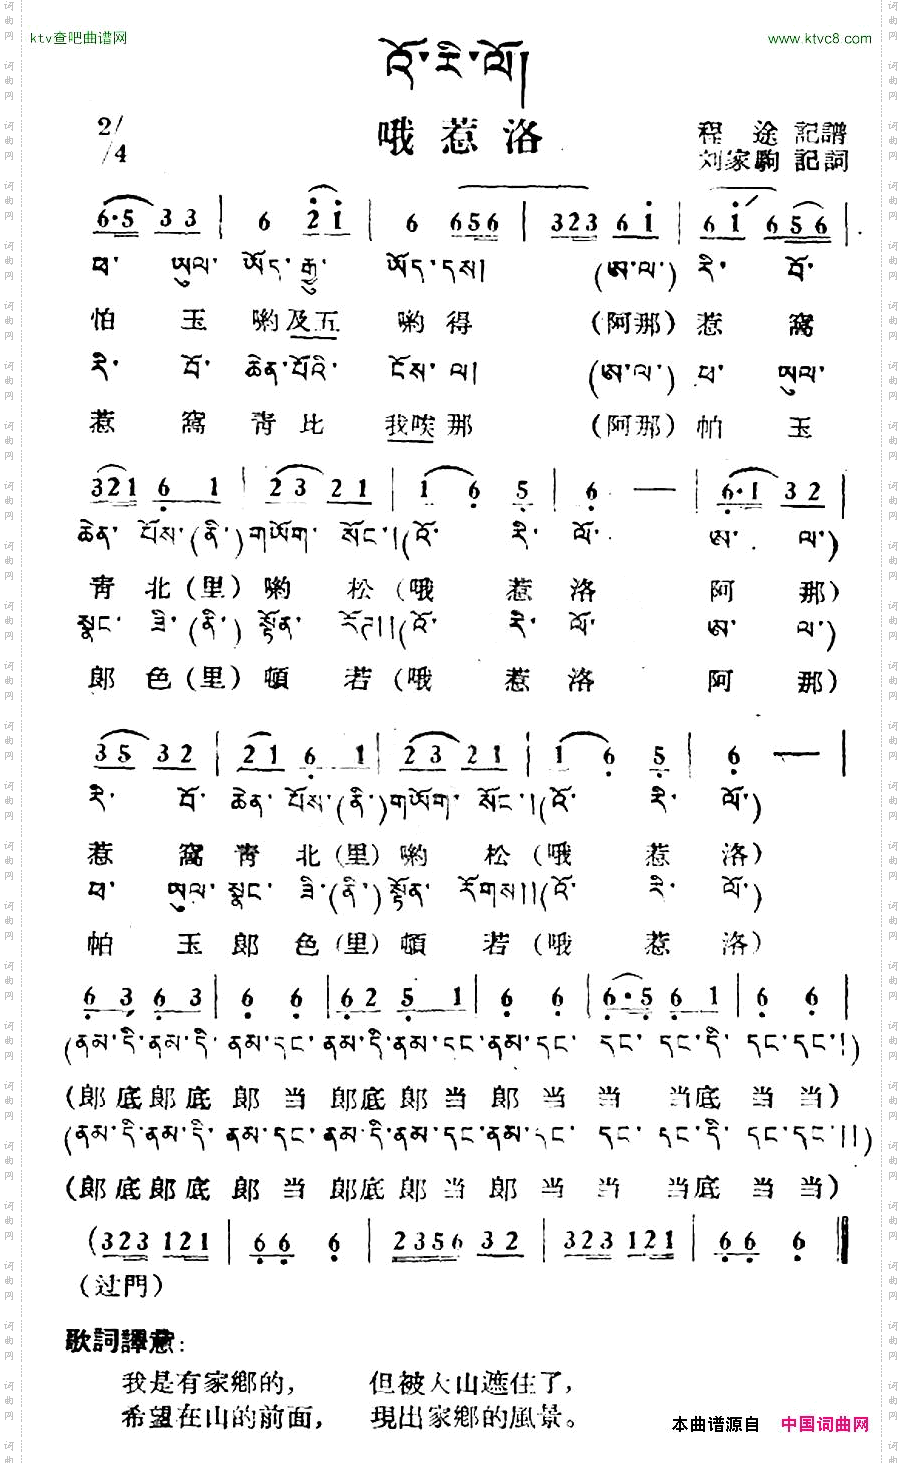 ktv查吧曲谱网 www.ktvc8.com
འོ་རི་ལོ།
哦惹洛
2/4
程途 記譜
刘家駒 記詞
6·5 3 3 | 6 2 1 | 6 6 5 6 | 3 2 3 6 1 | 6 1 6 5 6 |
ཕ་ ཡུལ་ ཡོད་ རྒྱུ་ ཡོད་དས། (ཨ་ལ་) རི་ བོ་
怕 玉 喲 及五 喲 得 (阿那) 惹 窩
རི་ བོ་ ཆེན་པོའི་ ངོས་ ལ། (ཨ་ལ་) ཕ་ ཡུལ་
惹 窩 青 比 我唉 那 (阿那) 帕 玉
3 2 1 6 1 | 2 3 2 1 | 1 6 5 | 6 — | 6·1 3 2 |
ཆེན་ པོས་(ནི་)གཡོག་ སོང་།(འོ་ རི་ ལོ་ ཨ་ ལ་)
青 北(里) 喲 松(哦 惹 洛 阿 那)
སྣང་ ཟི་(ནི་) སྟོན་ རོཊ།།(འོ་ རི་ ལོ་ ཨ་ ལ་)
郎 色(里) 頓 若(哦 惹 洛 阿 那)
3 5 3 2 | 2 1 6 1 | 2 3 2 1 | 1 6 5 | 6 — |
རི་ བོ་ ཆེན་ པོས་(ནི་)གཡོག་ སོང་།(འོ་ རི་ ལོ་)
惹 窩 青 北(里) 喲 松(哦 惹 洛)
ཕ་ ཡུལ་ སྣང་ ཟི་(ནི་) སྟོན་ རོགས།།(འོ་ རི་ ལོ་)
帕 玉 郎 色(里) 頓 若(哦 惹 洛)
6 3 6 3 | 6 6 | 6 2 5 1 | 6 6 | 6·5 6 1 | 6 6 |
(ནམ་དི་ནམ་དི་ ནམ་དང་ ནམ་དི་ནམ་དང་ནམ་དང་ དང་ དང་དི་ དང་དང་།)
(郎底郎底 郎 当 郎底郎当 郎 当 当 当底 当 当)
(ནམ་དི་ནམ་དི་ ནམ་དང་ ནམ་དི་ནམ་དང་ནམ་དང་ དང་ དང་དི་ དང་དང་།།)
(郎底郎底 郎 当 郎底郎当 郎 当 当 当底 当 当)
(3 2 3 1 2 1 | 6 6 6 | 2 3 5 6 3 2 | 3 2 3 1 2 1 | 6 6 6 ‖
(过門)
歌詞譯意:
我是有家鄉的, 但被大山遮住了,
希望在山的前面, 現出家鄉的風景。
本曲谱源自 中国词曲网